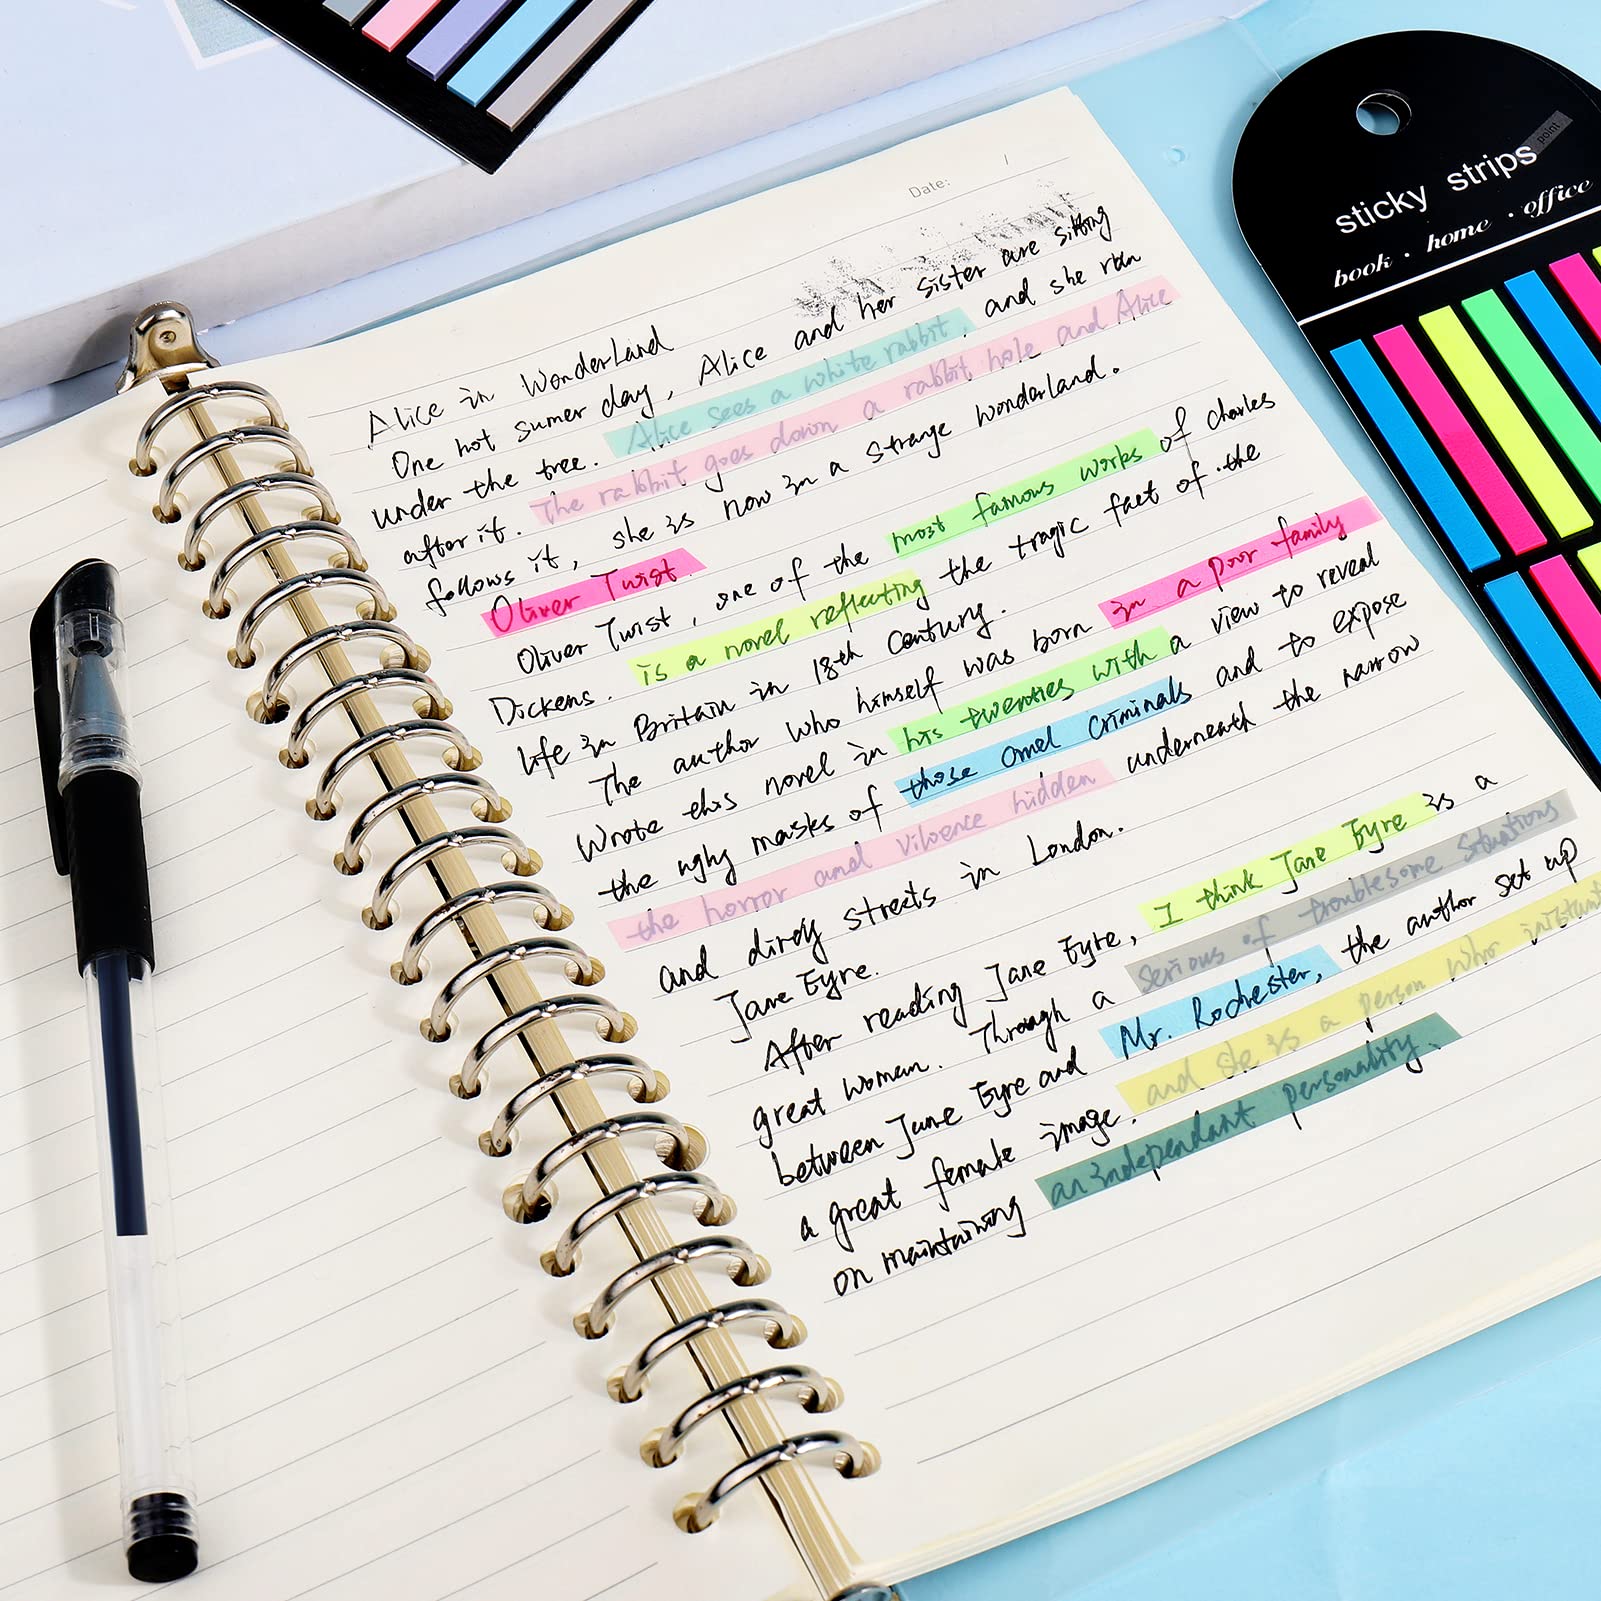 Date: /
Alice in Wonderland
One hot sumer day, Alice and her sister are sitting
under the tree. Alice sees a white rabbit, and she ran
after it. The rabbit goes down a rabbit hole and Alice
follows it, she is now in a strange wonderland.
Oliver Twist.
Oliver Twist, one of the most famous works of charles
Dickens. is a novel reflecting the tragic fact of the
life in Britain in 18th Century.
The author who himself was born in a poor family
Wrote this novel in his twenties with a view to reveal
the ugly masks of those criminals and to expose
the horror and vilvence hidden underneath the narrow
and dirdy streets in London.
Jane Eyre.
After reading Jane Eyre, I think Jane Eyre is a
great woman. Through a serious of troublesome situations
between Jane Eyre and Mr. Rochester, the author set up
a great female image. and she is a person who
on maintaining an independant personality.
sticky strips
point
book · home · office